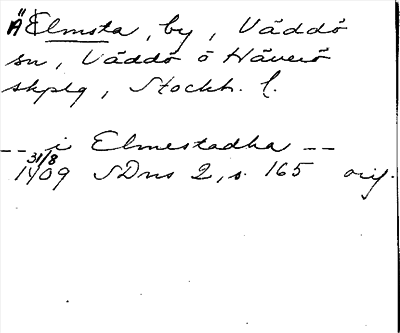 Älmsta, by, Väddö
sn, Väddö o Häverö
skplg, Stockh. l.
-- i Elmestadha --
31/8
1409 SDns 2, s. 165 orig.